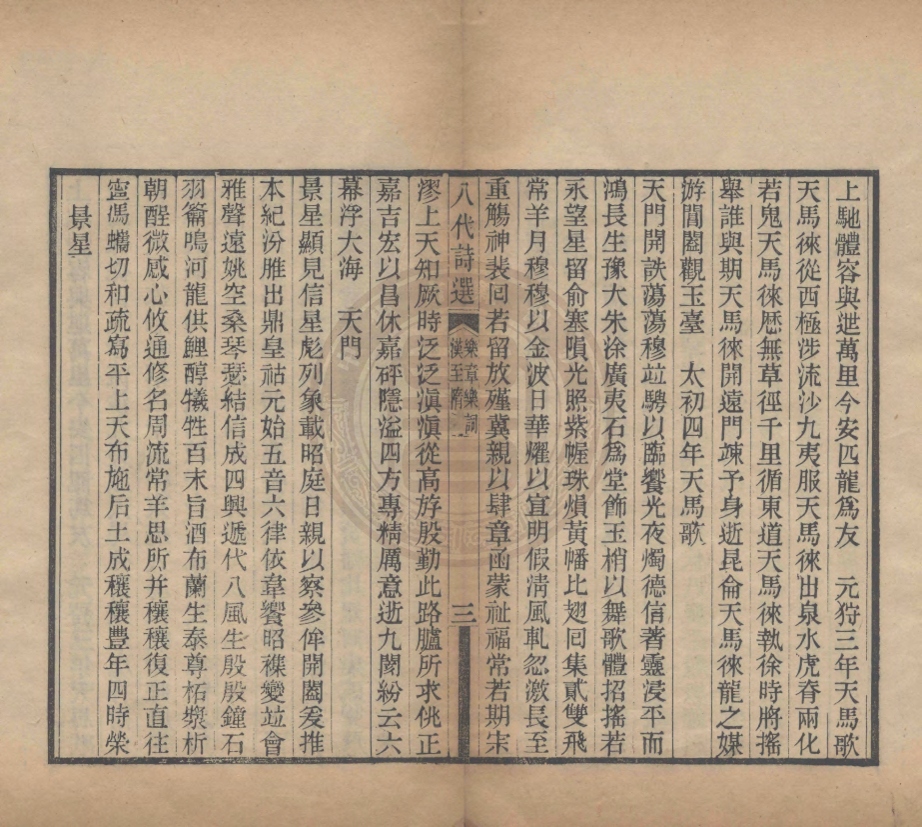 上馳體容與迣萬里今安匹龍爲友　元狩三年天馬歌
天馬徠從西極涉流沙九夷服天馬徠出泉水虎脊兩化
若鬼天馬徠歷無草徑千里循東道天馬徠執徐時將搖
舉誰與期天馬徠開遠門竦予身逝昆侖天馬徠龍之媒
游閶闔觀玉臺　太初四年天馬歌
天門開詄蕩蕩穆竝騁以臨饗光夜燭德信著靈浸平而
鴻長生豫大朱涂廣夷石爲堂飾玉梢以舞歌體招搖若
永望星留俞塞隕光照紫幄珠熉黃幡比翅回集貳雙飛
常羊月穆穆以金波日華燿以宣明假淸風軋忽激長至
重觴神裴回若留放殣冀親以肆章函蒙祉福常若期宋
八代詩選　樂章樂詞　漢至隋　三
漻上天知厥時泛泛滇滇從高斿殷勤此路臚所求佻正
嘉吉宏以昌休嘉砰隱溢四方專精厲意逝九閡紛云六
幕浮大海　天門
景星顯見信星彪列象載昭庭日親以察參侔開闔爰推
本紀汾脽出鼎皇祜元始五音六律依韋饗昭襍變竝會
雅聲遠姚空桑琴瑟結信成四興遞代八風生殷殷鐘石
羽籥鳴河龍供鯉醇犧牲百末旨酒布蘭生泰尊柘漿析
朝酲微感心攸通修名周流常羊思所并穰穰復正直往
甯馮蠵切和疏寫平上天布施后土成穰穰豐年四時榮
景星